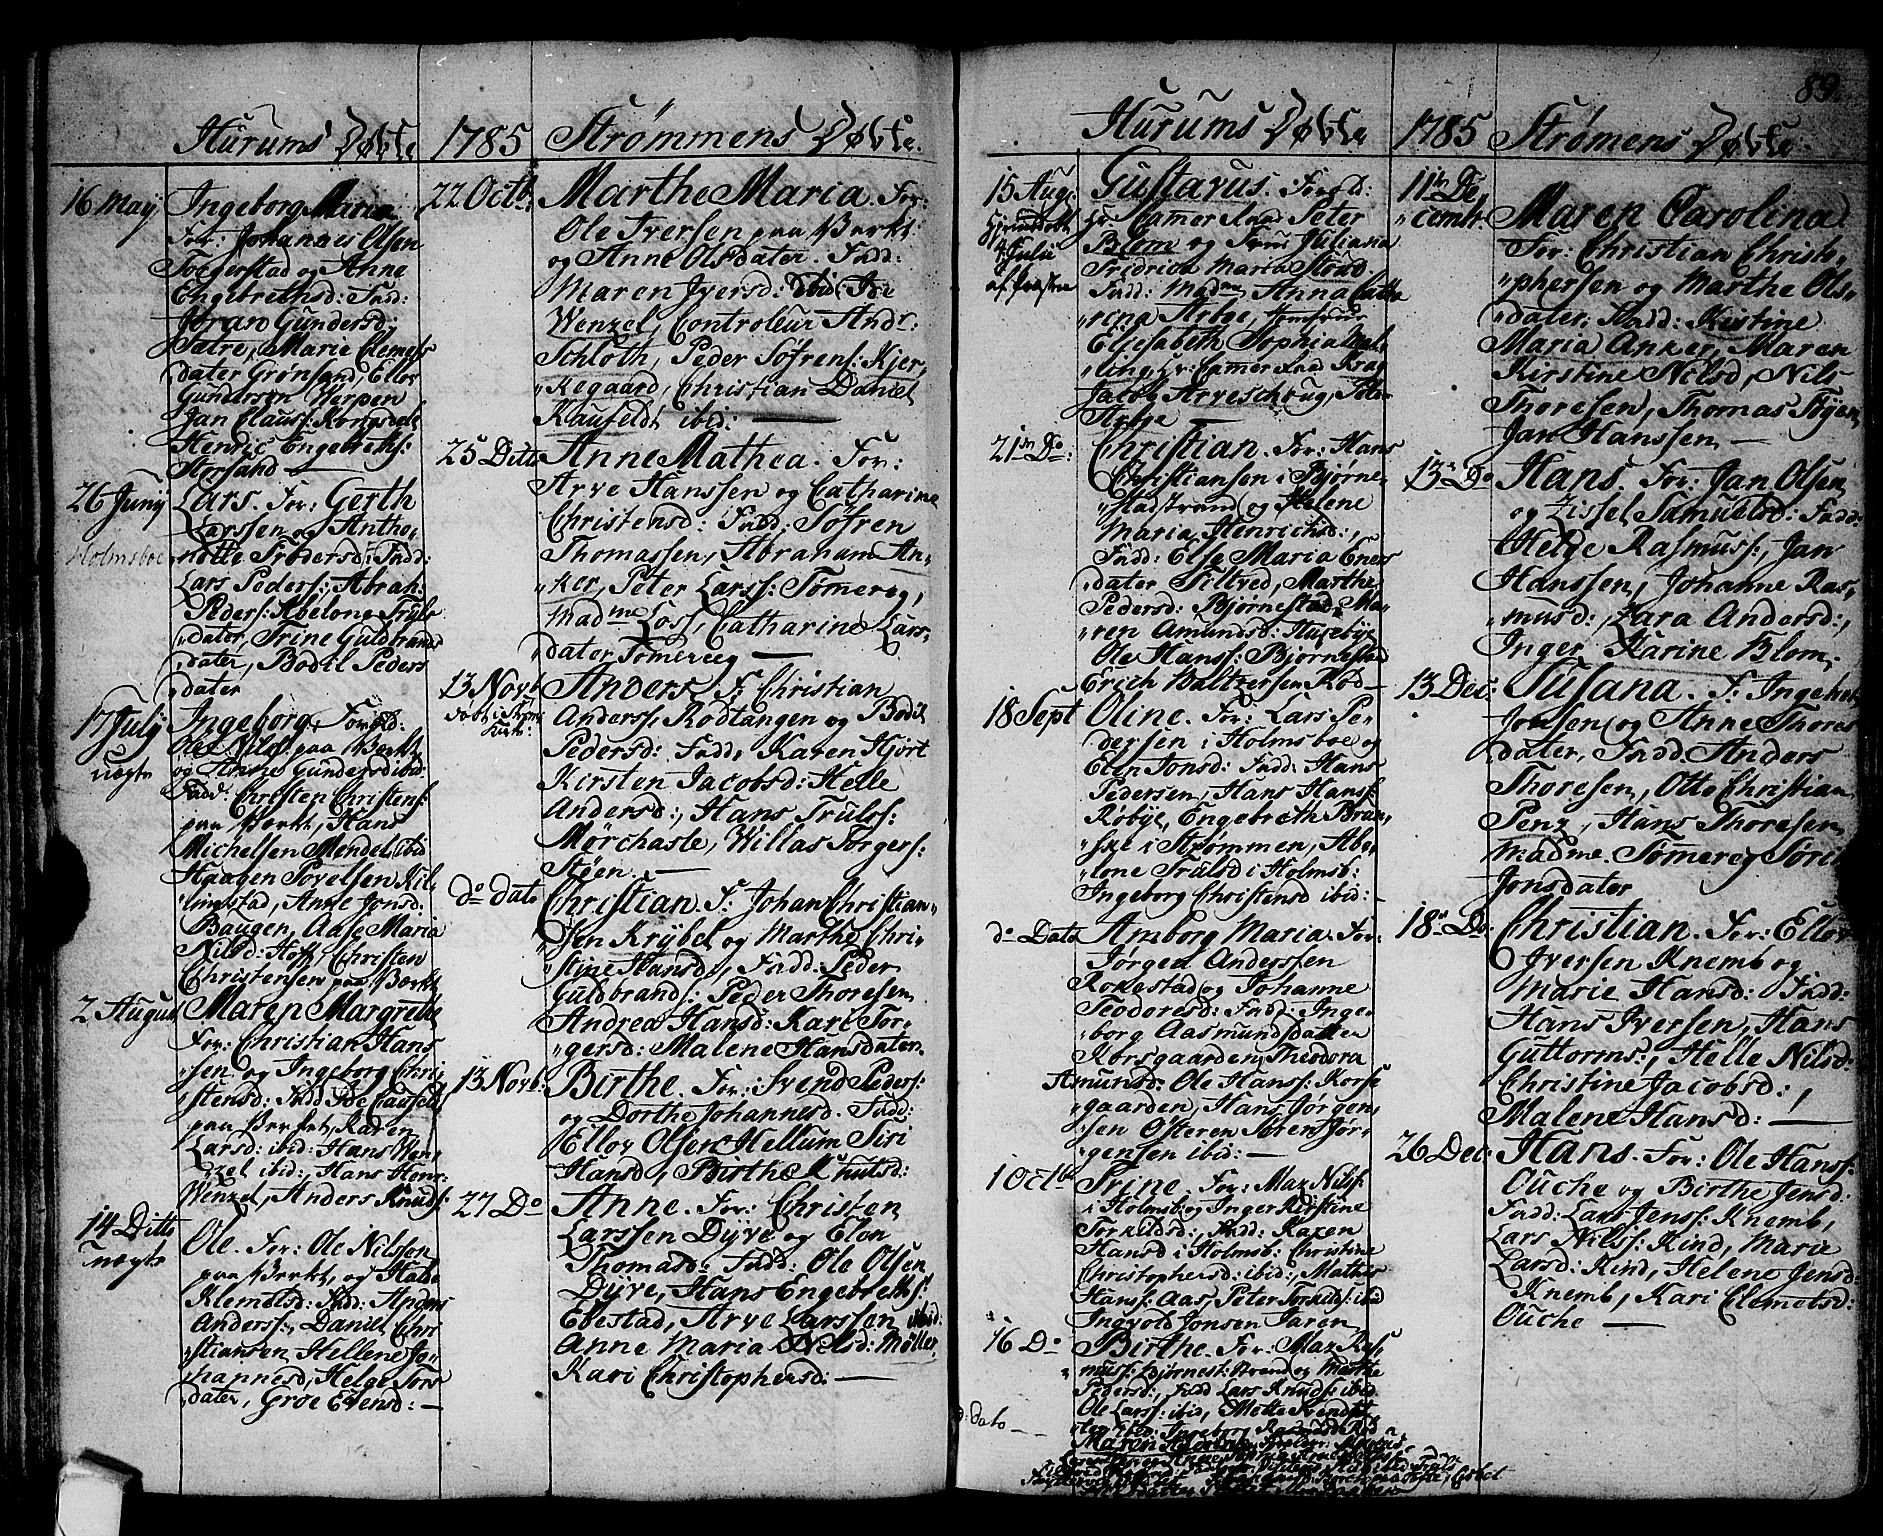 89.
Hurums Døbte
16 May
Ingeborg Maria
For: Johannes Olsen
Toggerstad og Anne
Engebrethsd: Fadd:
Joran Gundersd:
Sætre, Marie Clemets
dater Grønsand, Ellov
Gundersen Verpen
Jan Clauss: Kongsdel
Henric Engebreths:
Storsand —
26 Junij
Holmsboe
Lars. For: Gerth
Larssen og Antho-
"nette Trodersd: Fadd:
Lars Peders: Abrah:
Peders: Abelone Truls
"dater, Trine Guldbrands
"dater, Bodil Peders
"dater
17 July
uægte
Ingeborg. Forold:
Ole Nils: paa Værkt
og Anne Gundersd ibid:
Fadd: Christen Christens:
paa Værkt, Hans
Michelsen Mendel, ibid
Haagen Povelsen Kil-
"lingstad, Anne Jonsd:
Baugen, Aase Maria
Nilsd: Hoff, Christen
Christensen paa Værkt
2 August
Maren Margrethe
For: Christian Hans
"sen og Ingeborg Chri-
"stensd: Fadd: Ide Caufeld
paa Værket, Karen
Larsd: ibid: Hans Wen-
"zel ibid:, Hans Henr:
Wenzel, Anders Knuds:
14 Ditto
uægte
Ole. For: Ole Nilssen
paa Værkt, og Hake
Klemetsd: Fadd: Anders
Anderss:, Daniel Chri
"stiansen Hellene Jo-
"hannesd, Helge Tors
dater, Groe Evensd: —
1785 Strømmens Døbte.
22 Octb:
Marthe Maria. For:
Ole Iversen paa Værkt:
og Anne Olsdater. Fadd:
Maren Iversd: ibid: Ide
Wenzel, Controleur Andr:
Schloth, Peder Søfrens: Kjer-
"kegaard, Christian Daniel
Kaufeldt ibid: —
25 Ditto
Anne Mathea. For:
Arve Hanssen og Catharine
Christensd: Fadd: Søfren
Thomassen, Abraham An-
"ker, Peter Larss: Tømereg,
Madme Loss, Catharine Lars-
dater Tømereg —
13 Novb
døbt i Strøms
Kirke:
Anders. F: Christian
Anderss: Rødtangen og Bodil
Pedersd: Fadd: Karen Hjort
Kirsten Jacobsd: Helle
Andersd:, Hans Truls:
Mørchaste, Willas Torgers:
Støen. —
do dato
Christian. F: Johan Christian-
"sen Krybel og Marthe Chri-
"stine Hansd:, Fadd: Peder
Guldbrands: Peder Thoresen
Andrea Hansd: Kari Tor-
"gersd: Malene Hansdater.
13 Novb:
Birthe. For: Svend Peders:
og Dorthe Johannesd. Fadd:
Ellov Olsen Hellum Siri
Hansd, Birthe Knutsd:
27 Do
Anne. For: Christen
Larssen Dyve og Elen
Thomasd: Fadd: Ole Olsen
Dyve, Hans Engebreths:
Ebestad, Arve Larssen ibid:
Anne Maria Nelsd: Møller
Kari Christophersd: —
Hurums Døbte
15 Aug:
hjemdøbt
4 Julii
af Præsten
Gustavus. Forold:
Hr: Camer Raad Peter
Blom og Frue Juliana
Fredrica Maria Stoud.
Fadd: Madme Anna Catha
"rina Arboe,
Elisabeth Sophia
ling, Hr: Camer Raad Krag
Jacob Arveschoug, Peter
Arboe —
21de Do:
Christian. For: Hans
Christiansen i Bjørne-
"stadstrand og Helene
Maria Henrichsd:,
Fadd: Else Maria Eners
"dater Tillved, Marthe
Pedersd: Bjørnestad, Ma-
"ren Amundsd: Husebye
Ole Hanss: Bjørnestad
Erich Baltzersen Rød —
18 Sept
Oline. For: Lars Pe-
dersen i Holmsboe og
Elen Jonsd: Fadd: Hans
Pedersen, Hans Hans:
Røbye, Engebreth Bran-
"ske i Strømmen, Abe-
"lone Trulsd i Holmsb:
Ingeborg Christensd ibid: —
do Dato
Amborg Maria. For:
Jørgen Anderssen
Rokestad og Johanne
Teodoresd: Fadd: Inge-
"borg Aasmundsdatter
Korsgaarden, Theodora
Amundsd: Ole Hanss: Korse
"gaarden, Hans Jørgen-
"sen Østeren, Søren Jør-
"gensen ibid: —
1 Octb
Trine. For: Max Nils:
i Holmsb: og Inger Kirstine
Torkildsd:, Fadd: Karen
Hansd i Holmsb: Christine
Christophersd: ibid: Mathis
Hanss: Aas, Peter Torkilds: ibid
Ingvold Jonsen Saren
16 Do
Birthe. For: Max Ras-
"muss: Bjørnest: Strand og Marthe
Pedersd:, Fadd Lars Knuds: ibid
Ole Larss: ibid,
d: dato —
1785 Strømens Døbte.
11te De-
"cembr:
Maren Carolina
For: Christian Christo-
"phersen og Marthe Ols-
"dater, Fadd: Kistine
Maria Anker, Maren
Kirstine Nilsd, Nils
Thoresen, Thomas Styen
Jan Hanssen —
13 Do
Hans. For: Jan Olsen
og Zissel Samuelsd: Fadd:
Helge Rasmuss:, Jan
Hanssen, Johanne Ras-
"musd:, Zara Andersd:,
Inger Karine Blom.
13 Dec:
Susana. F: Ingebret
Jonsen og Anne Thores
dater, Fadd: Anders
Thoresen, Otto Christian
Penz, Hans Thoresen
Madme. Tømereg Søri
Jonsdater
18 Do:
Christian. For: Ellov
Iversen Knemb og
Marie Hansd: Fadd:
Hans Iversen, Hans
Guttorms:, Helle Nilsd:
Christine Jacobsd:,
Malene Hansd: —
26 Dec
Hans. For: Ole Hanss:
Ouche og Birthe Jensd:
Fadd: Lars Jenss: Knemb,
Lars Nils: Kind, Marie
Larsd: Kind, Helene Jensd:
Knemb, Kari Clemetsd:
Ouche —